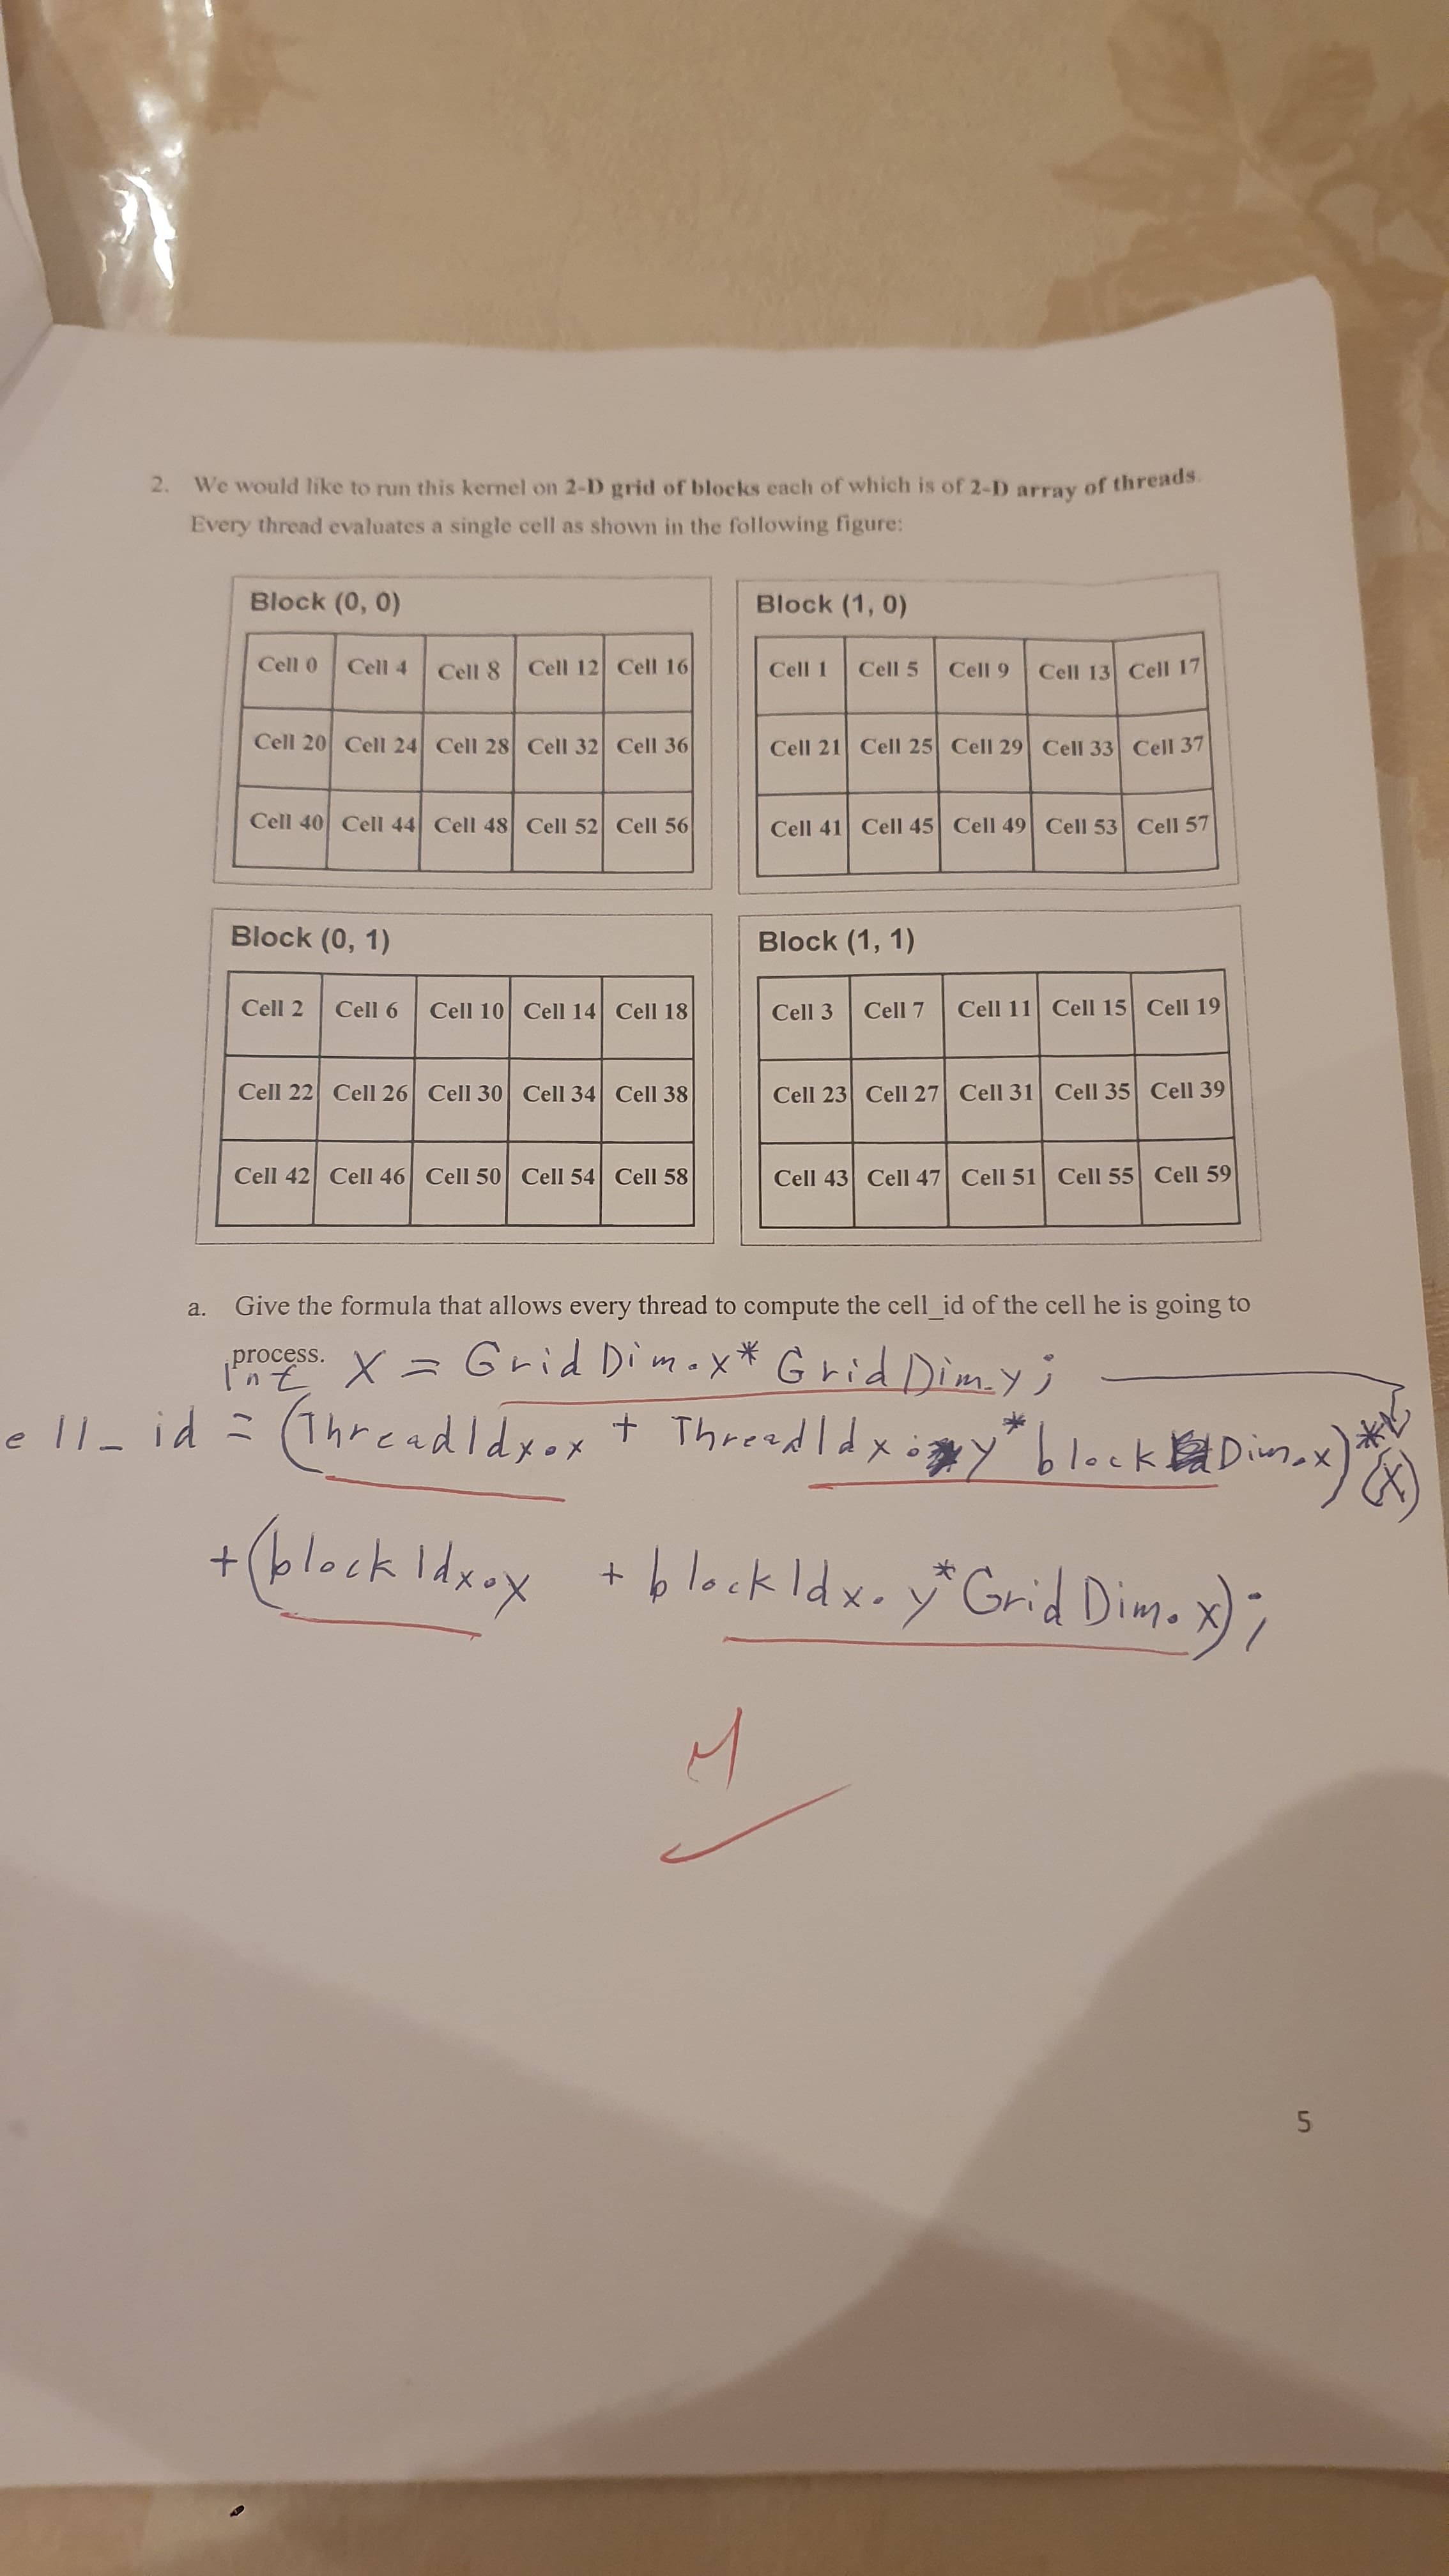 2. We would like to run this kernel on 2-D grid of blocks each of which is of 2-D array of threads.
Every thread evaluates a single cell as shown in the following figure:
Block (0, 0)
Cell 0 Cell 4 Cell 8 Cell 12 Cell 16
Cell 20 Cell 24 Cell 28 Cell 32 Cell 36
Cell 40 Cell 44 Cell 48 Cell 52 Cell 56
Block (1, 0)
Cell 1 Cell 5 Cell 9 Cell 13 Cell 17
Cell 21 Cell 25 Cell 29 Cell 33 Cell 37
Cell 41 Cell 45 Cell 49 Cell 53 Cell 57
Block (0, 1)
Cell 2 Cell 6 Cell 10 Cell 14 Cell 18
Cell 22 Cell 26 Cell 30 Cell 34 Cell 38
Cell 42 Cell 46 Cell 50 Cell 54 Cell 58
Block (1, 1)
Cell 3 Cell 7 Cell 11 Cell 15 Cell 19
Cell 23 Cell 27 Cell 31 Cell 35 Cell 39
Cell 43 Cell 47 Cell 51 Cell 55 Cell 59
a. Give the formula that allows every thread to compute the cell_id of the cell he is going to
process.
int X = GridDim.x * GridDim.y;
ell_id = (ThreadIdx.x + ThreadIdx.y * blockDim.x) * (X)
+ (blockIdx.x + blockIdx.y * GridDim.x);
5